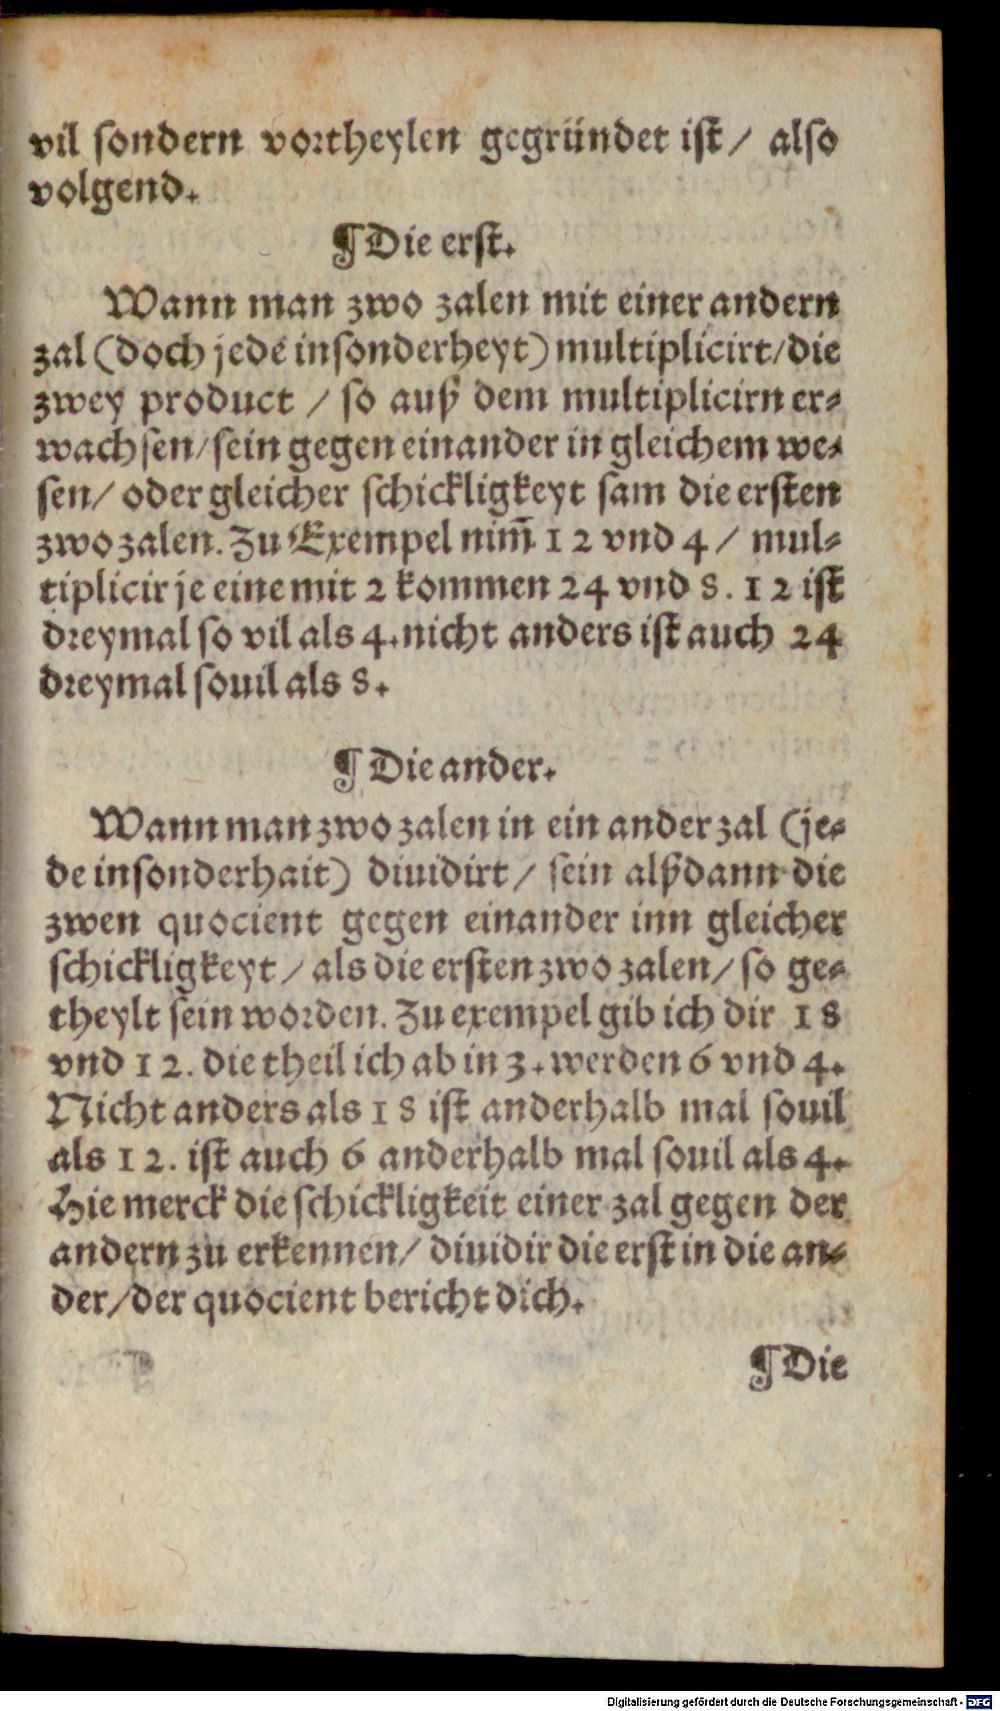 vil sondern vortheylen gegründet ist / also
volgend.
¶ Die erst.
Wann man zwo zalen mit einer andern
zal (doch jede insonderheyt) multiplicirt / die
zwey product / so auß dem multiplicirn er⸗
wachsen / sein gegen einander in gleichem we⸗
sen / oder gleicher schickligkeyt sam die ersten
zwo zalen. Zu Exempel nim̄ 12 vnd 4 / mul⸗
tiplicir je eine mit 2 kommen 24 vnd 8. 12 ist
dreymal so vil als 4. nicht anders ist auch 24
dreymal souil als 8.
¶ Die ander.
Wann man zwo zalen in ein ander zal (je⸗
de insonderhait) diuidirt / sein alßdann die
zwen quocient gegen einander inn gleicher
schickligkeyt / als die ersten zwo zalen / so ge⸗
theylt sein worden. Zu exempel gib ich dir 18
vnd 12. die theil ich ab in 3. werden 6 vnd 4.
Nicht anders als 18 ist anderhalb mal souil
als 12. ist auch 6 anderhalb mal souil als 4.
Hie merck die schickligkeit einer zal gegen der
andern zu erkennen / diuidir die erst in die an⸗
der / der quocient bericht dich.
¶ Die
Digitalisierung gefördert durch die Deutsche Forschungsgemeinschaft - DFG